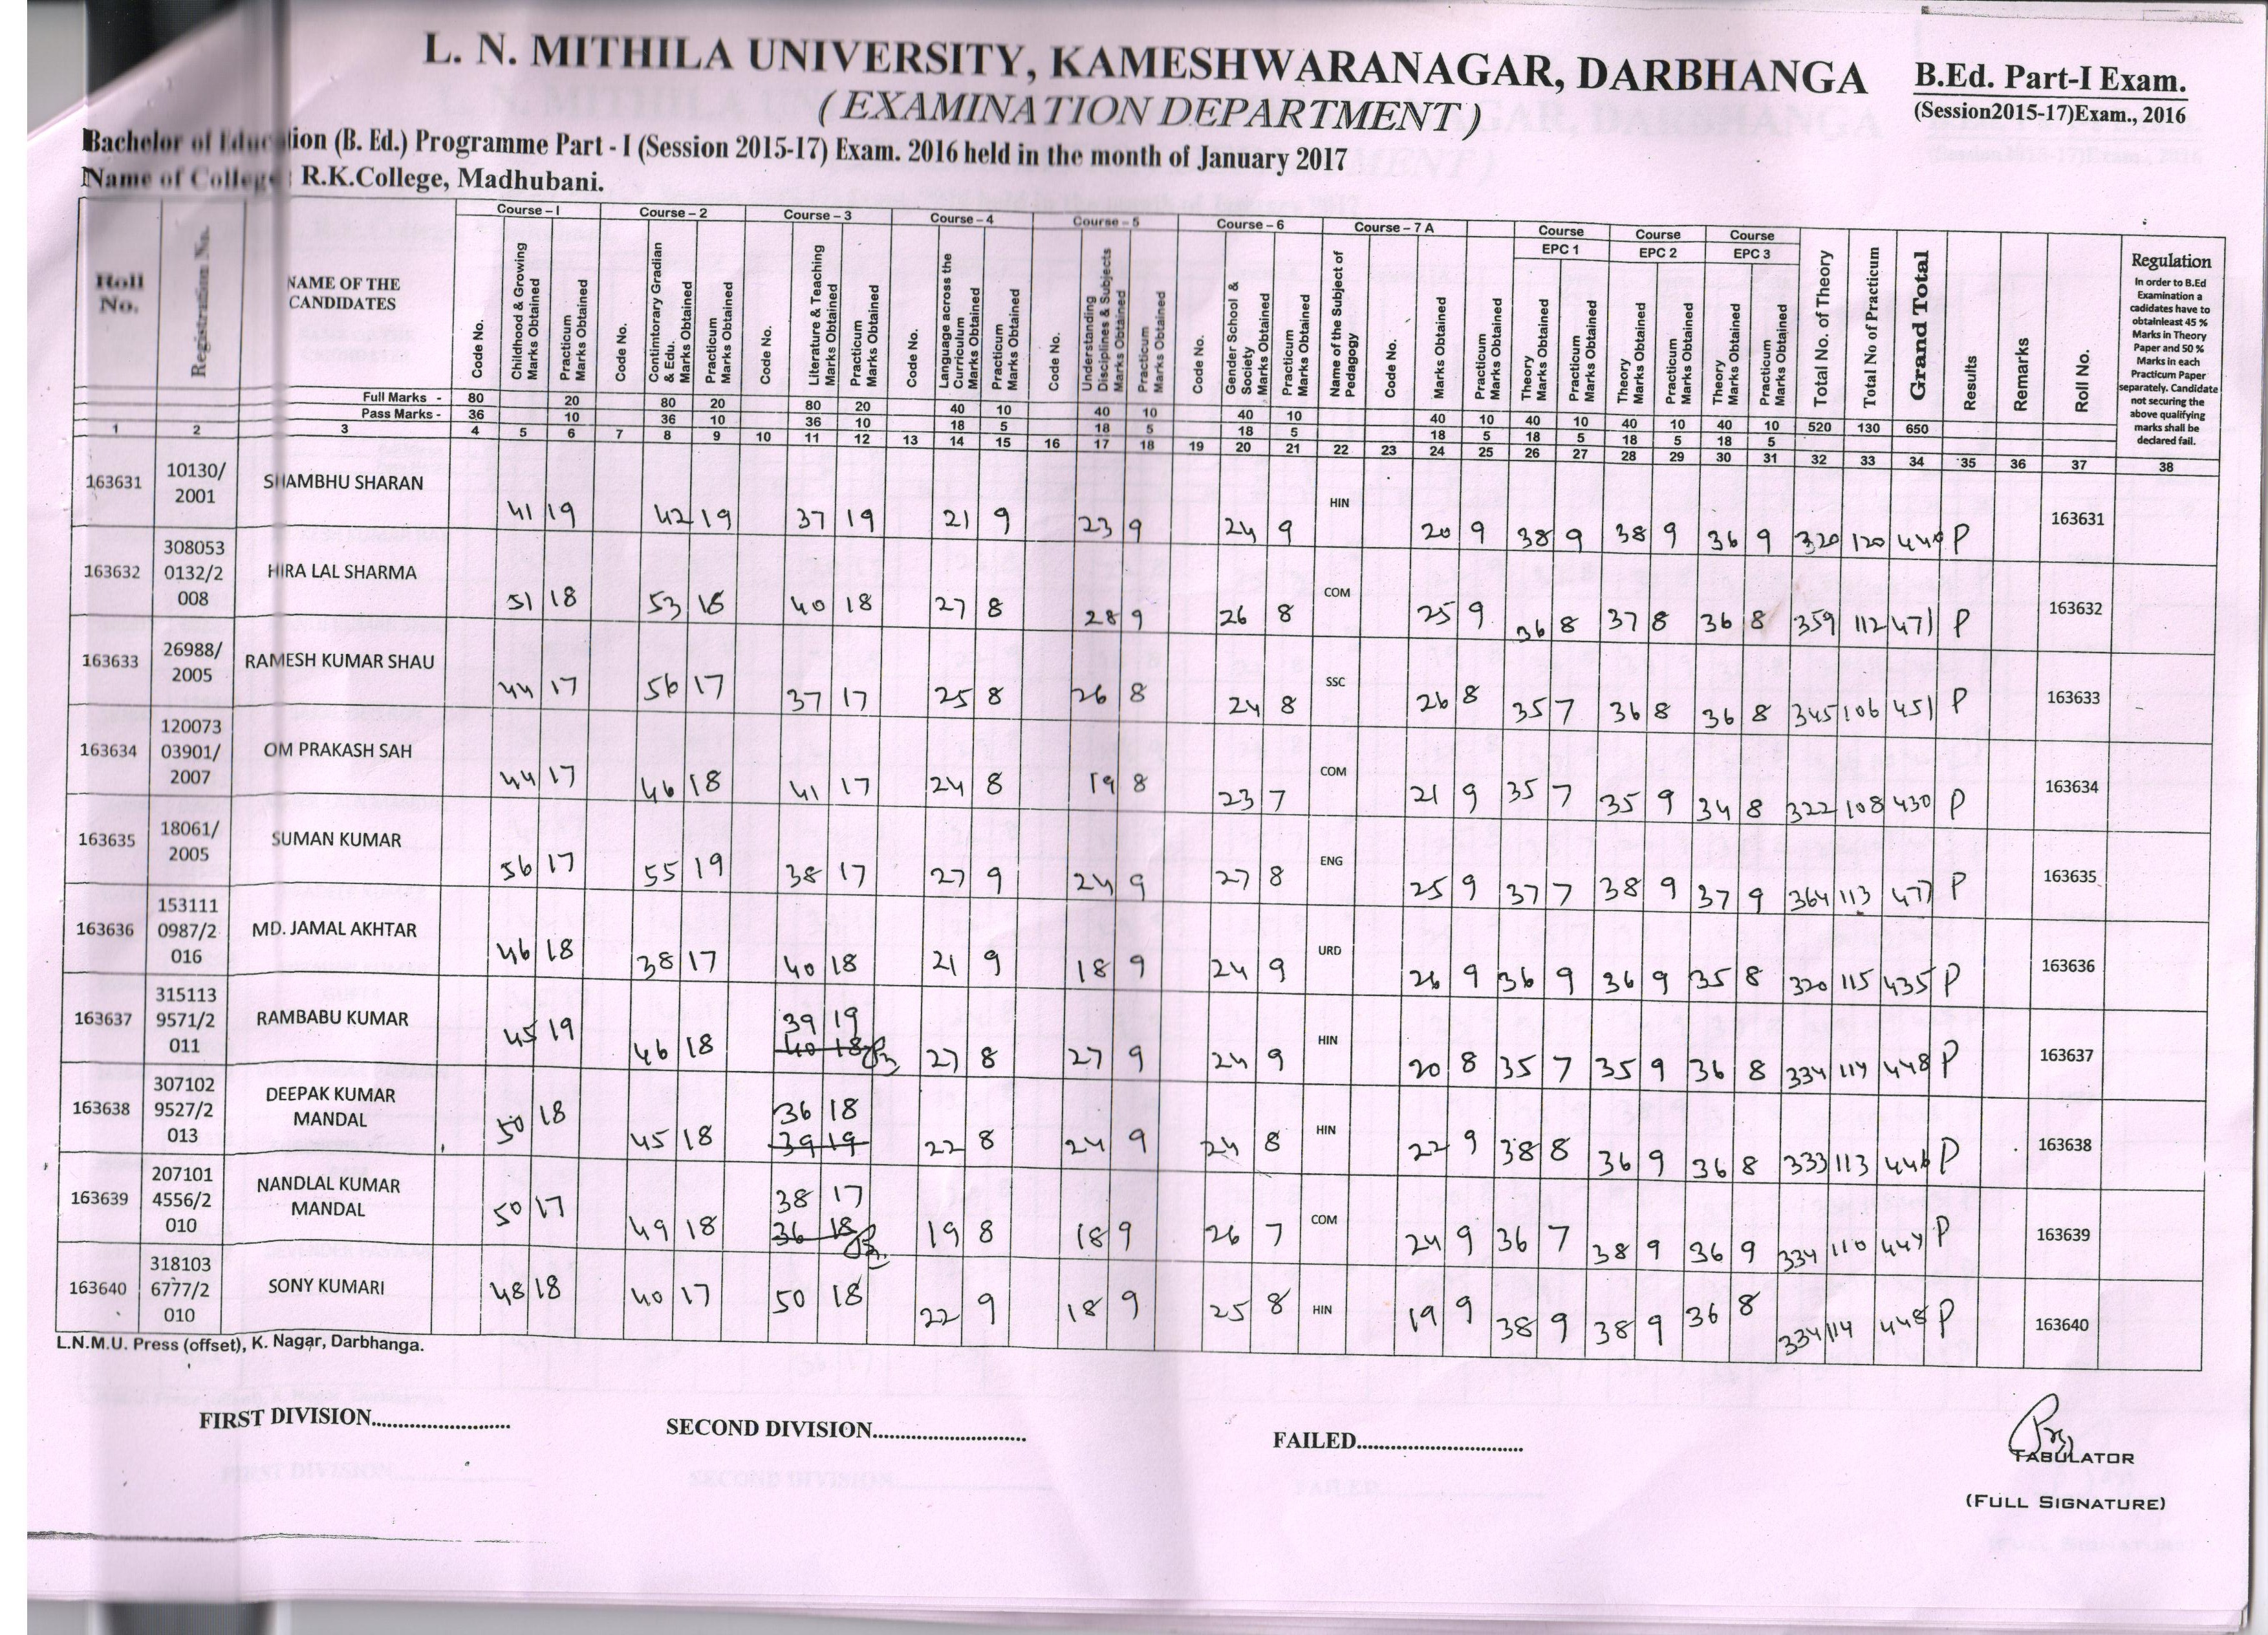 L. N. MITHILA UNIVERSITY, KAMESHWARANAGAR, DARBHANGA
B.Ed. Part-I Exam.
( EXAMINATION DEPARTMENT )
(Session2015-17)Exam., 2016
Bachelor of Education (B. Ed.) Programme Part - I (Session 2015-17) Exam. 2016 held in the month of January 2017
Name of College : R.K.College, Madhubani.
Roll No. Registration No. NAME OF THE CANDIDATES
Course – I Course – 2 Course – 3 Course – 4 Course – 5 Course – 6 Course – 7 A Course EPC 1 Course EPC 2 Course EPC 3
Code No. Childhood & Growing Marks Obtained Practicum Marks Obtained
Code No. Contimtorary Gradian & Edu. Marks Obtained Practicum Marks Obtained
Code No. Literature & Teaching Marks Obtained Practicum Marks Obtained
Code No. Language across the Curriculum Marks Obtained Practicum Marks Obtained
Code No. Understanding Disciplines & Subjects Marks Obtained Practicum Marks Obtained
Code No. Gender School & Society Marks Obtained Practicum Marks Obtained
Name of the Subject of Pedagogy Code No. Marks Obtained Practicum Marks Obtained
Theory Marks Obtained Practicum Marks Obtained
Theory Marks Obtained Practicum Marks Obtained
Theory Marks Obtained Practicum Marks Obtained
Total No. of Theory Total No of Practicum Grand Total Results Remarks Roll No.
Regulation
In order to B.Ed
Examination a
cadidates have to
obtainleast 45 %
Marks in Theory
Paper and 50 %
Marks in each
Practicum Paper
separately. Candidate
not securing the
above qualifying
marks shall be
declared fail.
Full Marks - 80 20 80 20 80 20 40 10 40 10 40 10 40 10 40 10 40 10 40 10 520 130 650
Pass Marks - 36 10 36 10 36 10 18 5 18 5 18 5 18 5 18 5 18 5 18 5
1 2 3 4 5 6 7 8 9 10 11 12 13 14 15 16 17 18 19 20 21 22 23 24 25 26 27 28 29 30 31 32 33 34 35 36 37 38
163631 10130/2001 SHAMBHU SHARAN 41 19 42 19 37 19 21 9 23 9 24 9 HIN 20 9 38 9 38 9 36 9 320 120 440 P 163631
163632 3080530132/2008 HIRA LAL SHARMA 51 18 53 18 40 18 27 8 28 9 26 8 COM 25 9 36 8 37 8 36 8 359 112 471 P 163632
163633 26988/2005 RAMESH KUMAR SHAU 44 17 56 17 37 17 25 8 26 8 24 8 SSC 26 8 35 7 36 8 36 8 345 106 451 P 163633
163634 12007303901/2007 OM PRAKASH SAH 44 17 46 18 41 17 24 8 19 8 23 7 COM 21 9 35 7 35 9 34 8 322 108 430 P 163634
163635 18061/2005 SUMAN KUMAR 56 17 55 19 38 17 27 9 24 9 27 8 ENG 25 9 37 7 38 9 37 9 364 113 477 P 163635
163636 1531110987/2016 MD. JAMAL AKHTAR 46 18 38 17 40 18 21 9 18 9 24 9 URD 26 9 36 9 36 9 35 8 320 115 435 P 163636
163637 3151139571/2011 RAMBABU KUMAR 45 19 46 18 39 19 40 18 27 8 27 9 24 9 HIN 20 8 35 7 35 9 36 8 334 114 448 P 163637
163638 3071029527/2013 DEEPAK KUMAR MANDAL 50 18 45 18 36 18 39 19 22 8 24 9 24 8 HIN 22 9 38 8 36 9 36 8 333 113 446 P 163638
163639 2071014556/2010 NANDLAL KUMAR MANDAL 50 17 49 18 38 17 36 18 19 8 18 9 26 7 COM 24 9 36 7 38 9 36 9 334 110 444 P 163639
163640 3181036777/2010 SONY KUMARI 48 18 40 17 50 18 22 9 18 9 25 8 HIN 19 9 38 9 38 9 36 8 334 114 448 P 163640
L.N.M.U. Press (offset), K. Nagar, Darbhanga.
FIRST DIVISION.......................... SECOND DIVISION............................. FAILED...............................
TABULATOR
(FULL SIGNATURE)